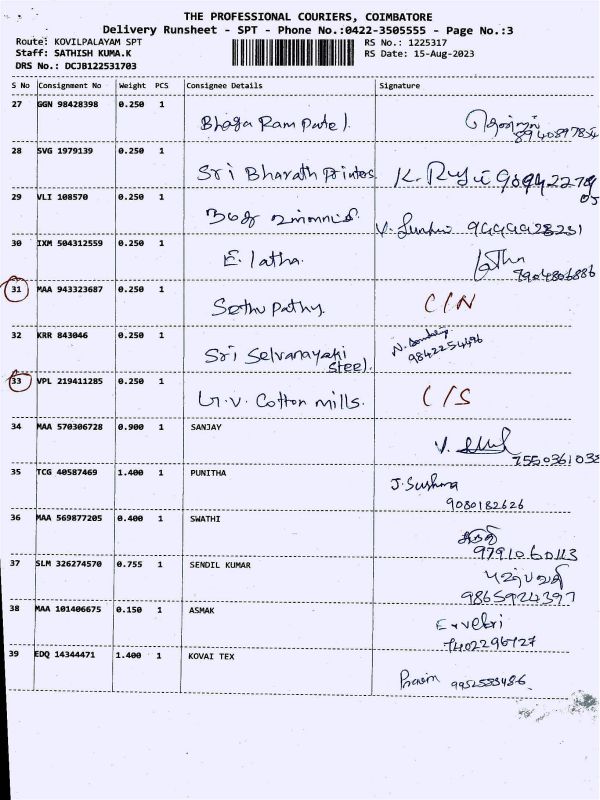 THE PROFESSIONAL COURIERS, COIMBATORE
Delivery Runsheet - SPT - Phone No.:0422-3505555 - Page No.:3
Route: KOVILPALAYAM SPT RS No.: 1225317
Staff: SATHISH KUMA.K RS Date: 15-Aug-2023
DRS No.: DCJB122531703
S No Consignment No Weight PCS Consignee Details Signature
27 GGN 98428398 0.250 1
Bhaga Ram Patel.
28 SVG 1979139 0.250 1
Sri Bharath Printers
29 VLI 108570 0.250 1
30 IXM 504312559 0.250 1
E. latha.
7904806886
31 MAA 943323687 0.250 1
Sethu Pathy. C/N
32 KRR 843046 0.250 1
Sri Selvanayaki 9842254496
Steel.
33 VPL 219411285 0.250 1
G.V. Cotton mills. C/S
34 MAA 570306728 0.900 1 SANJAY
755036103
35 TCG 40587469 1.400 1 PUNITHA
J. Sushma
9080182626
36 MAA 569877205 0.400 1 SWATHI
9791060113
37 SLM 326274570 0.755 1 SENDIL KUMAR
9865924397
38 MAA 101406675 0.150 1 ASMAK
7402296727
39 EDQ 14344471 1.400 1 KOVAI TEX
Pravin 9952555486